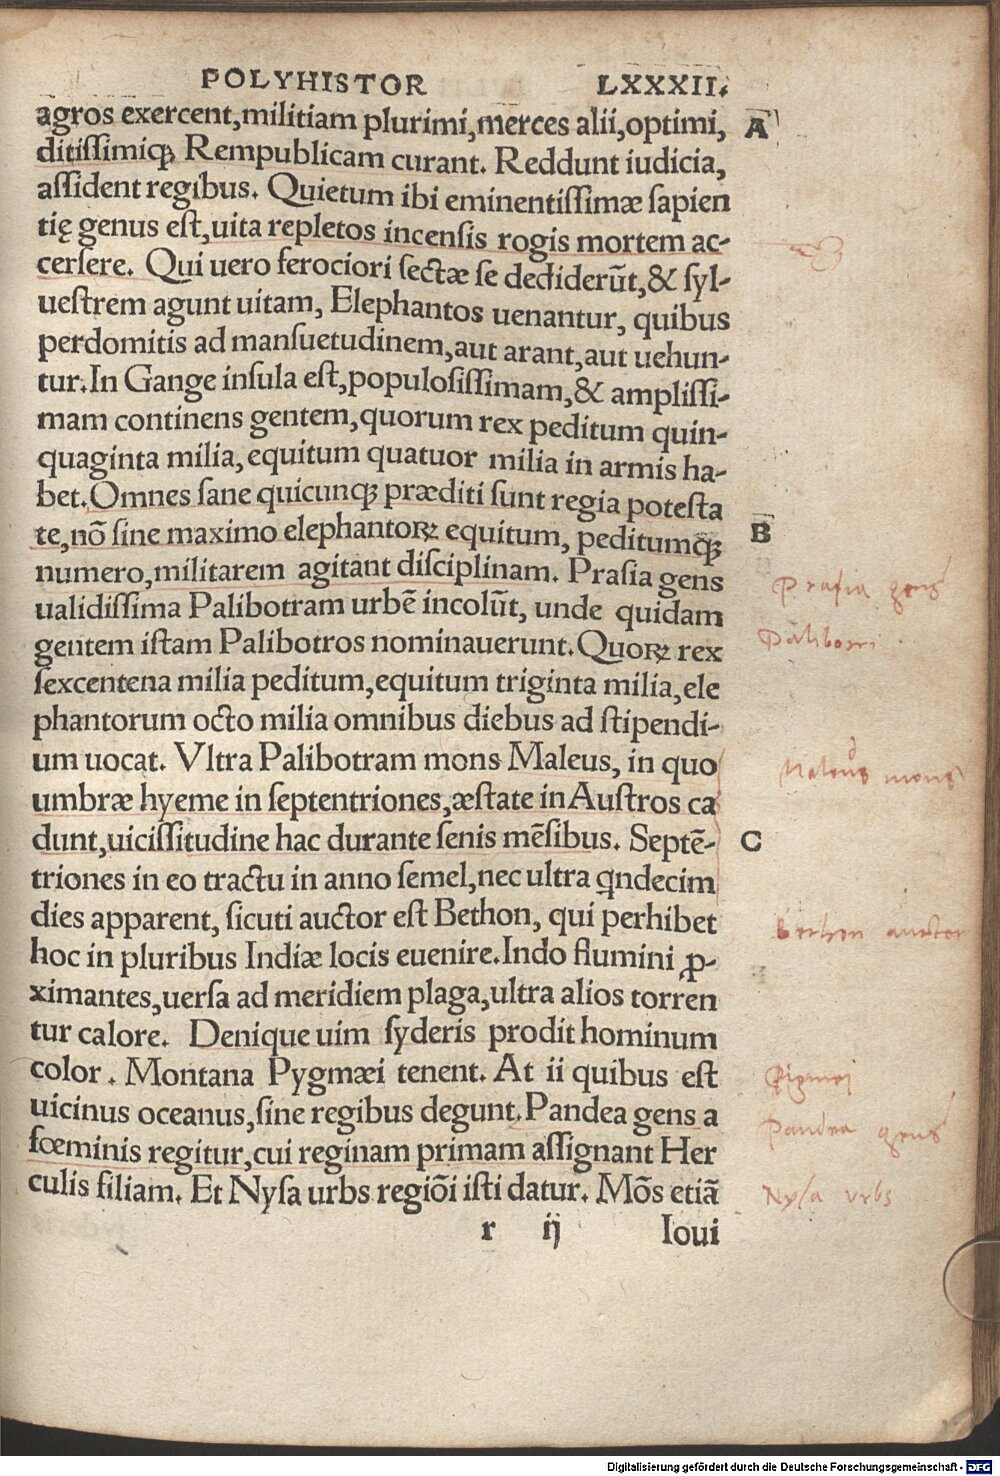 POLYHISTOR LXXXII.
agros exercent,militiam plurimi,merces alii,optimi, A
ditiſſimiqꝫ Rempublicam curant. Reddunt iudicia,
aſſident regibus. Quietum ibi eminentiſſimæ ſapien
tię genus eſt,uita repletos incenſis rogis mortem ac-
cerſere. Qui uero ferociori ſectæ ſe dediderūt,& ſyl-
ueſtrem agunt uitam, Elephantos uenantur, quibus
perdomitis ad manſuetudinem,aut arant,aut uehun-
tur.In Gange inſula eſt,populoſiſſimam,& ampliſſi-
mam continens gentem,quorum rex peditum quin-
quaginta milia,equitum quatuor milia in armis ha-
bet.Omnes ſane quicunqꝫ præditi ſunt regia poteſta
te,nō ſine maximo elephantoꝝ equitum, peditumqꝫ B
numero,militarem agitant diſciplinam. Praſia gens
Prasia gens
ualidiſſima Palibotram urbē incolūt, unde quidam
gentem iſtam Palibotros nominauerunt.Quoꝝ rex
ſexcentena milia peditum,equitum triginta milia,ele
phantorum octo milia omnibus diebus ad ſtipendi-
um uocat. Vltra Palibotram mons Maleus, in quo
Maleus mons
umbræ hyeme in ſeptentriones,æſtate in Auſtros ca
dunt,uiciſſitudine hac durante ſenis mēſibus. Septē- C
triones in eo tractu in anno ſemel,nec ultra qndecim
dies apparent, ſicuti auctor eſt Bethon, qui perhibet
Bethon auctor
hoc in pluribus Indiæ locis euenire.Indo flumini ꝓ-
ximantes,uerſa ad meridiem plaga,ultra alios torren
tur calore. Denique uim ſyderis prodit hominum
color. Montana Pygmæi tenent. At ii quibus eſt
Pigmei
uicinus oceanus,ſine regibus degunt.Pandea gens a
Pandea gens
fœminis regitur,cui reginam primam aſſignant Her
culis filiam. Et Nyſa urbs regiōi iſti datur. Mōs etiā
Nysa vrbs
r ij Ioui
Digitalisierung gefördert durch die Deutsche Forschungsgemeinschaft - DFG